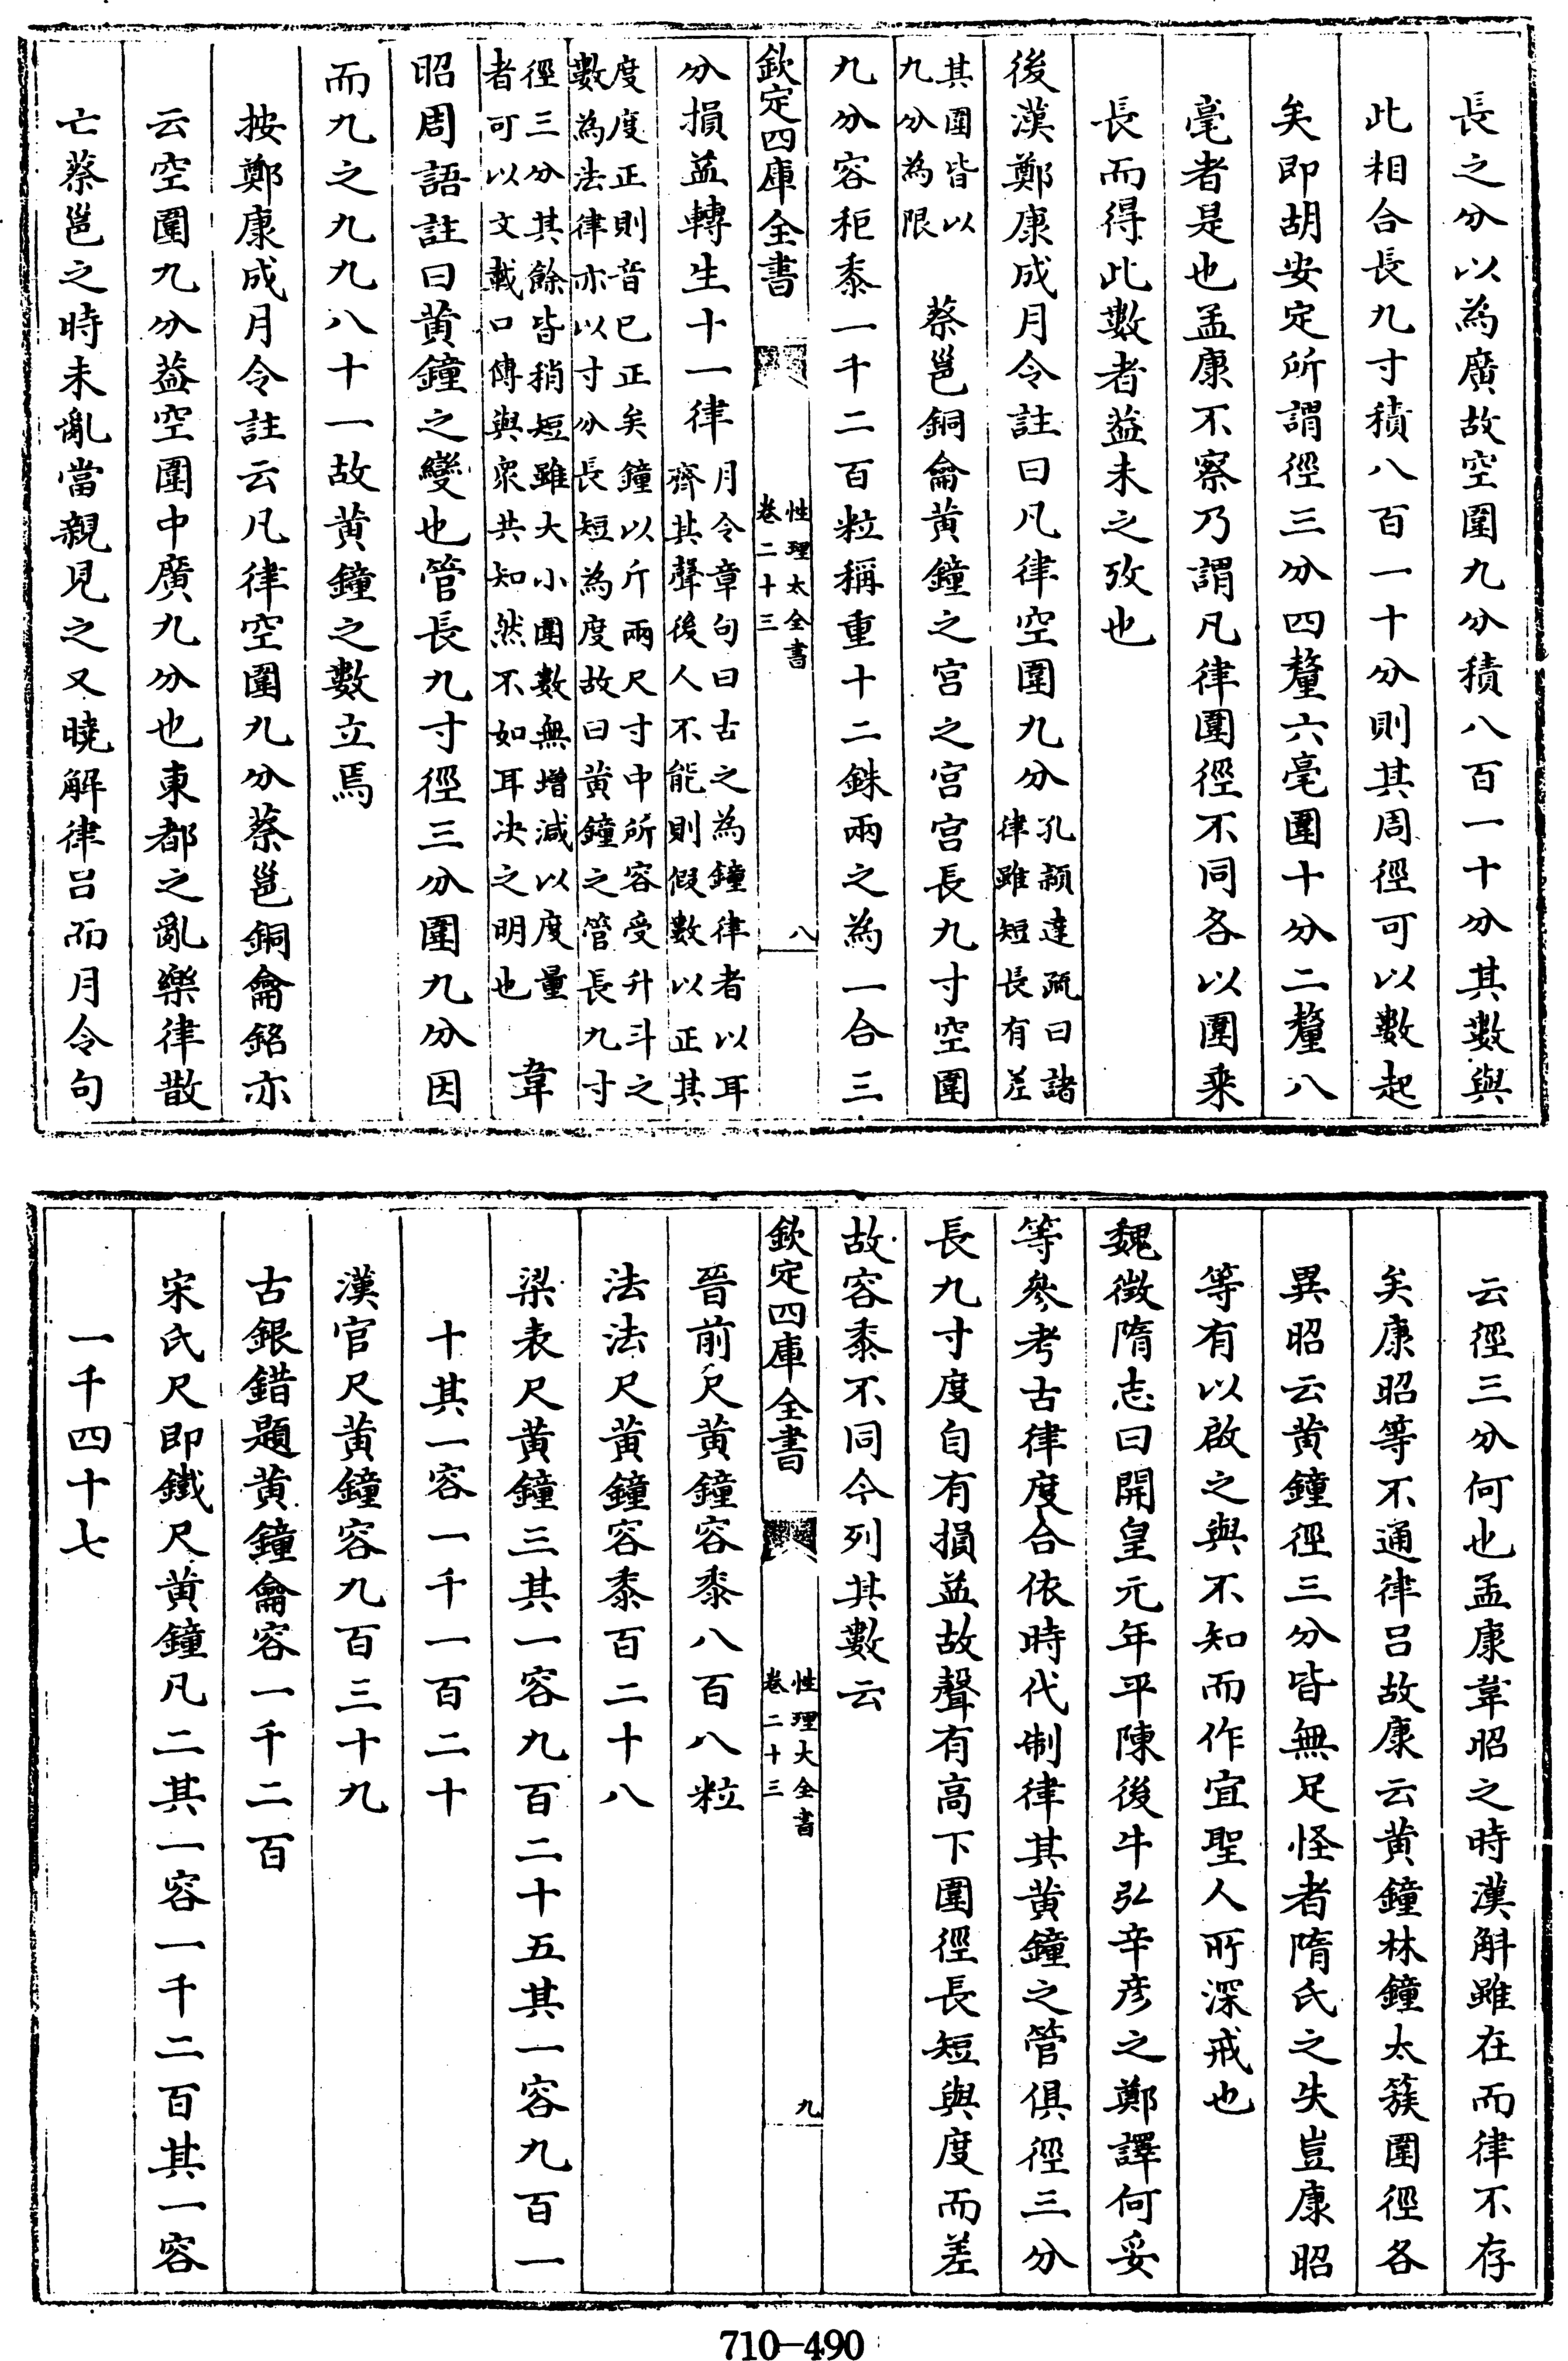 長之分以為廣故空圍九分積八百一十分其數與
此相合長九寸積八百一十分則其周徑可以數起
矣即胡安定所謂徑三分四釐六毫圍十分二釐八
毫者是也孟康不察乃謂凡律圍徑不同各以圍乘
長而得此數者蓋未之攷也
後漢鄭康成月令註曰凡律空圍九分孔穎達疏曰諸律雖短長有差
其圍皆以九分為限 蔡邕銅龠黃鐘之宮之宮宮長九寸空圍
九分容秬黍一千二百粒稱重十二銖兩之為一合三
欽定四庫全書 性理大全書 卷二十三 八
分損益轉生十一律月令章句曰古之為鐘律者以耳齊其聲後人不能則假數以正其
度度正則音已正矣鐘以斤兩尺寸中所容受升斗之數為法律亦以寸分長短為度故曰黃鐘之管長九寸
徑三分其餘皆稍短雖大小圍數無增減以度量者可以文載口傳與衆共知然不如耳决之明也 韋
昭周語註曰黃鐘之變也管長九寸徑三分圍九分因
而九之九九八十一故黃鐘之數立焉
按鄭康成月令註云凡律空圍九分蔡邕銅龠銘亦
云空圍九分蓋空圍中廣九分也東都之亂樂律散
亡蔡邕之時未亂當親見之又曉解律呂而月令句
云徑三分何也孟康韋昭之時漢斛雖在而律不存
矣康昭等不通律呂故康云黃鐘林鐘太簇圍徑各
異昭云黃鐘徑三分皆無足怪者隋氏之失豈康昭
等有以啟之與不知而作宜聖人所深戒也
魏徵隋志曰開皇元年平陳後牛弘辛彥之鄭譯何妥
等參考古律度合依時代制律其黃鐘之管俱徑三分
長九寸度自有損益故聲有高下圍徑長短與度而差
故容黍不同今列其數云
欽定四庫全書 性理大全書 卷二十三 九
晉前尺黃鐘容黍八百八粒
法法尺黃鐘容黍百二十八
梁表尺黃鐘三其一容九百二十五其一容九百一
十其一容一千一百二十
漢官尺黃鐘容九百三十九
古銀錯題黃鐘龠容一千二百
宋氏尺即鐵尺黃鐘凡二其一容一千二百其一容
一千四十七
710-490